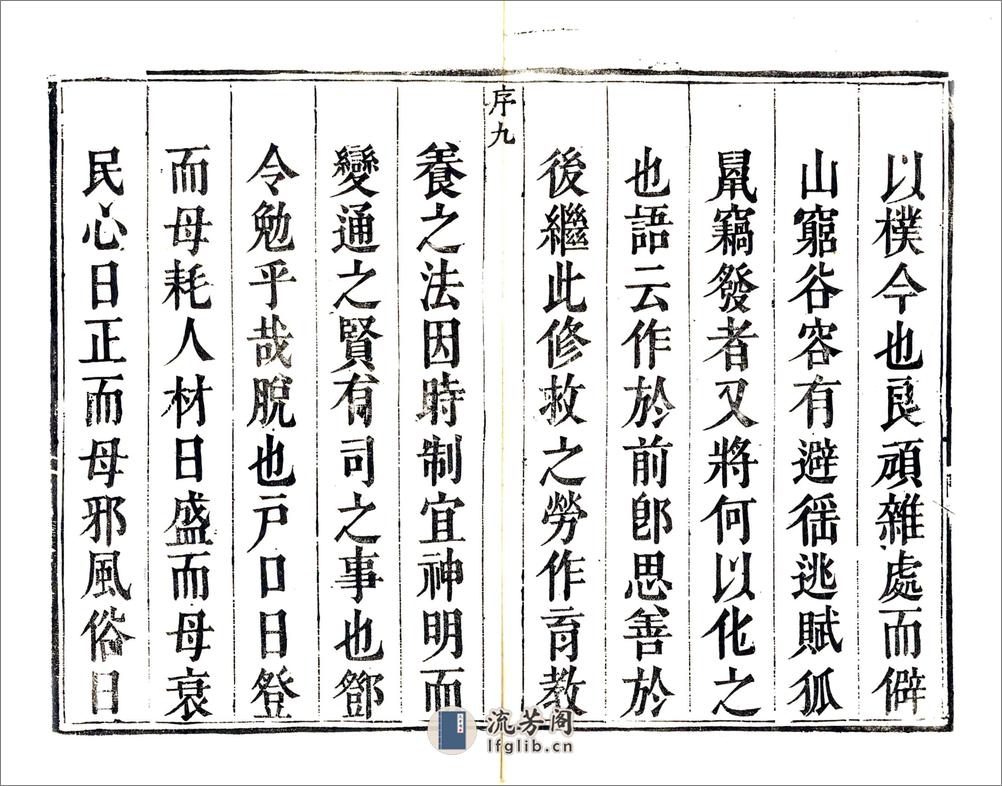 以樸今也良頑雜處而僻
山窮谷容有避徭逃賦狐
鼠竊發者又將何以化之
也語云作於前卽思善於
後繼此修救之勞作育教
序九
養之法因時制宜神明而
變通之賢有司之事也鄧
令勉乎哉脫也戶口日登
而母耗人材日盛而母衰
民心日正而母邪風俗日
流芳阁
lfglib.cn